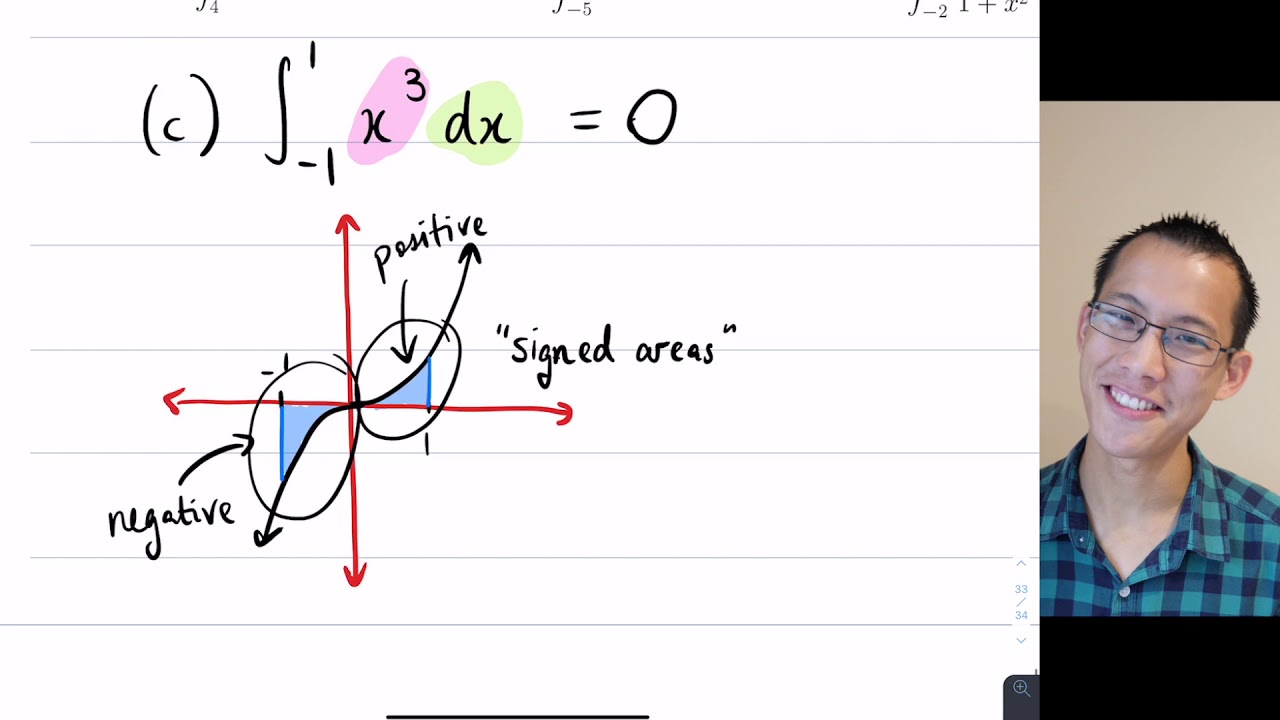 ∫₄ ∫₋₅ ∫₋₂ 1 + x²
(c) ∫₋₁¹ x³ dx = 0
positive
"signed areas"
-1
1
negative
33
/
34